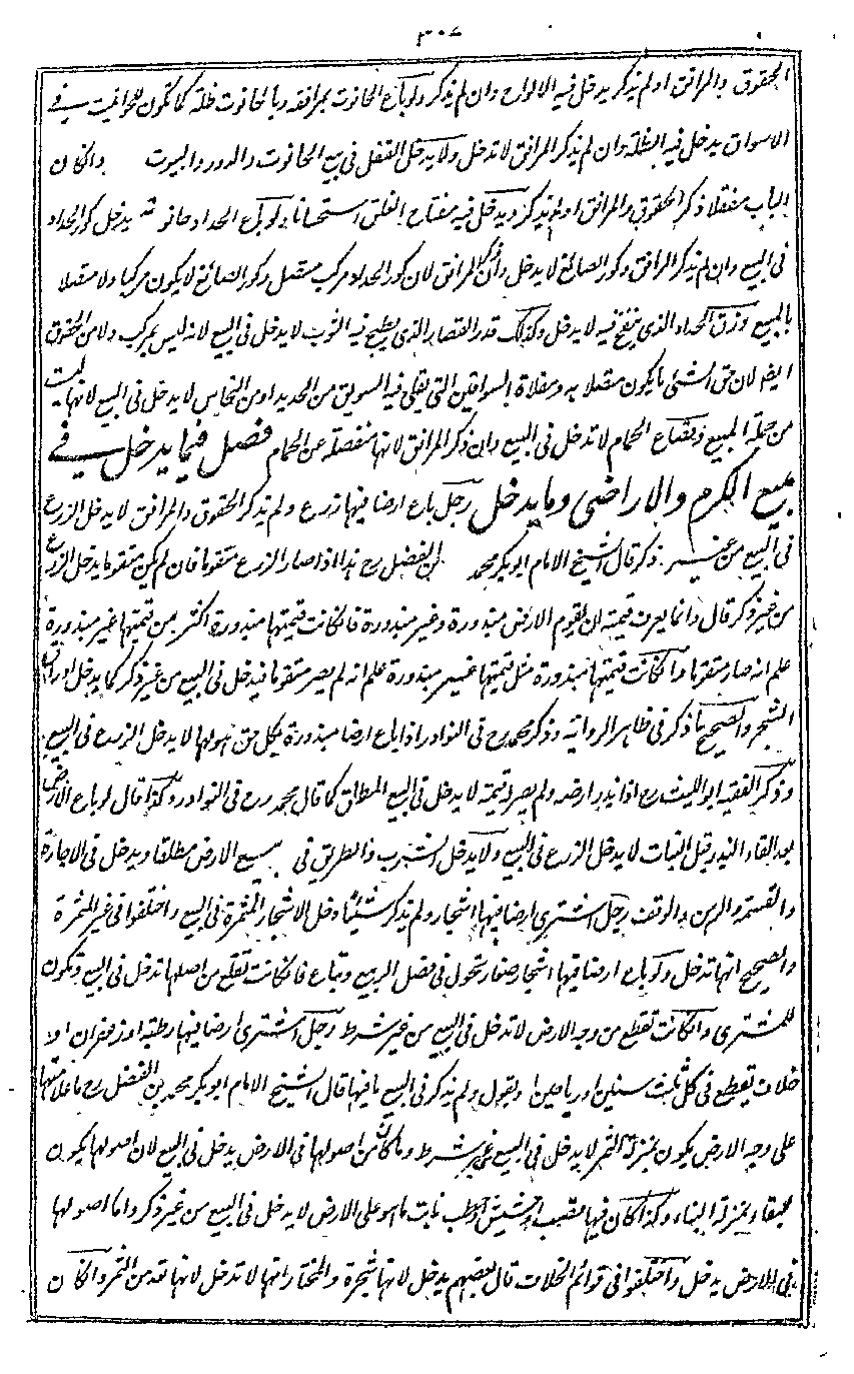 ٣٠٤
الحقوق والمرافق او لم يذكر يدخل فيه الالواح وان لم يذكر ولو باع الحانوت بمرافقه وبالحانوت ظلة كما تكون للحوانيت في
الاسواق يدخل فيه الظلة وان لم يذكر المرافق لا تدخل ولا يدخل القفل فى بيع الحانوت والدور والبيوت وان كان
الباب مقفلا ذكر الحقوق والمرافق او لم يذكر ويدخل فيه مفتاح الغلق استحسانا ولو باع الحداد حانوته يدخل كور الحداد
فى البيع وان لم يذكر المرافق وكور الصائغ لا يدخل وان ذكر المرافق لان كور الحداد مركب متصل وكور الصائغ لا يكون مركبا ولا متصلا
بالمبيع وزق الحداد الذى ينفخ فيه لا يدخل وكذلك قدر القصار الذى يطبخ فيه الثوب لا يدخل فى البيع لانه ليس بمركب ولا من الحقوق
ايضا لان حق الشئ ما يكون متصلا به ومقلاة السواقين التى يقلى فيه السويق من الحديد او من النحاس لا يدخل فى البيع لانها ليست
من جملة المبيع وقصاع الحمام لا تدخل فى البيع وان ذكر المرافق لانها منفصلة عن الحمام فصل فيما يدخل في
بيع الكرم والاراضى وما يدخل رجل باع ارضا فيها زرع ولم يذكر الحقوق والمرافق لا يدخل الزرع
فى البيع من غير ذكر قال الشيخ الامام ابو بكر محمد بن الفضل رح هذا اذا صار الزرع متقوما فان لم يكن متقوما يدخل الزرع
من غير ذكر قال وانما يعرف قيمته ان يقوم الارض مبذورة وغير مبذورة فان كانت قيمتها مبذورة اكثر من قيمتها غير مبذورة
علم انه صار متقوما وان كانت قيمتها مبذورة مثل قيمتها غير مبذورة علم انه لم يصر متقوما فيدخل فى البيع من غير ذكر كما يدخل اوراق
الشجر والصحيح ما ذكر فى ظاهر الرواية وذكر محمد رح فى النوادر اذا باع ارضا مبذورة بكل حق هو لها لا يدخل الزرع فى البيع
وذكر الفقيه ابو الليث رح اذا بذر ارضه ولم يصر له قيمة لا يدخل فى البيع المطلق كما قال محمد رح فى النوادر وكذا قال لو باع الارض
بعد القاء البذر قبل النبات لا يدخل الزرع فى البيع ولا يدخل الشرب والطريق فى بيع الارض مطلقا ويدخل فى الاجارة
والقسمة والرهن والوقف رجل اشترى ارضا فيها اشجار ولم يذكر شيئا دخل الاشجار المثمرة فى البيع واختلفوا فى غير المثمرة
والصحيح انها تدخل ولو باع ارضا فيها اشجار صغار تحول فى فصل الربيع وتباع فان كانت تقلع من اصلها تدخل فى البيع وتكون
للمشترى وان كانت تقطع من وجه الارض لا تدخل فى البيع من غير شرط رجل اشترى ارضا فيها رطبة او زعفران او
خلاف يقطع فى كل ثلث سنين او رياحين او بقول ولم يذكر فى البيع ما فيها قال الشيخ الامام ابو بكر محمد بن الفضل رح ما علا منها
على وجه الارض يكون بمنزلة الثمر لا يدخل فى البيع من غير شرط وما كان من اصولها فى الارض يدخل فى البيع لان اصولها يكون
للبقاء بمنزلة البناء وكذا ان كان فيها قصب او حشيش او حطب نابت ما هو على الارض لا يدخل فى البيع من غير ذكر واما اصولها
فى الارض يدخل واختلفوا فى قوائم الخلاف قال بعضهم يدخل لانها شجرة والمختار انها لا تدخل لانها تعد من الثمر وان كان